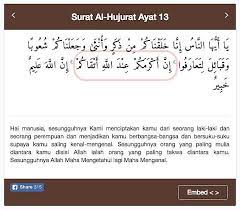 Surat Al-Hujurat Ayat 13
يَا أَيُّهَا النَّاسُ إِنَّا خَلَقْنَاكُمْ مِنْ ذَكَرٍ وَأُنْثَىٰ وَجَعَلْنَاكُمْ شُعُوبًا
وَقَبَائِلَ لِتَعَارَفُوا ۚ إِنَّ أَكْرَمَكُمْ عِنْدَ اللَّهِ أَتْقَاكُمْ ۚ إِنَّ اللَّهَ عَلِيمٌ
خَبِيرٌ
Hai manusia, sesungguhnya Kami menciptakan kamu dari seorang laki-laki dan
seorang perempuan dan menjadikan kamu berbangsa-bangsa dan bersuku-suku
supaya kamu saling kenal-mengenal. Sesungguhnya orang yang paling mulia
diantara kamu disisi Allah ialah orang yang paling takwa diantara kamu.
Sesungguhnya Allah Maha Mengetahui lagi Maha Mengenal.
Share 315
Embed < >